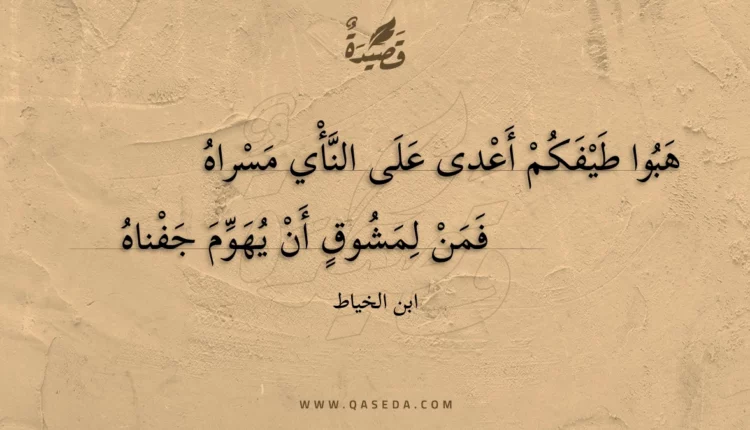 قَصِيْدَةٌ
هَبُوا طَيْفَكُمْ أَعْدى عَلَى النَّأْيِ مَسْراهُ
فَمَنْ لِمَشُوقٍ أَنْ يُهَوِّمَ جَفْناهُ
ابن الخياط
WWW.QASEDA.COM